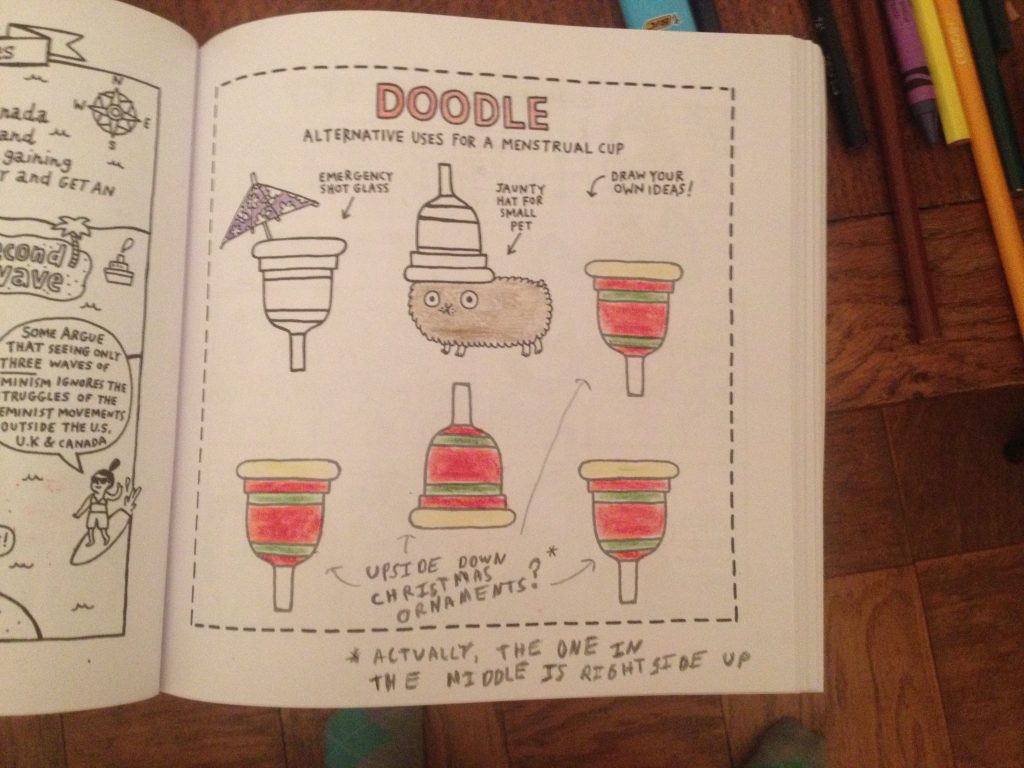 ES
N
W E
S
nada
and
gaining
r and GET AN
econd
wave
SOME ARGUE
THAT SEEING ONLY
THREE WAVES OF
MINISM IGNORES THE
TRUGGLES OF THE
EMINIST MOVEMENTS
OUTSIDE THE U.S,
U.K & CANADA
!
DOODLE
ALTERNATIVE USES FOR A MENSTRUAL CUP
EMERGENCY
SHOT GLASS
JAUNTY
HAT FOR
SMALL
PET
DRAW YOUR
OWN IDEAS!
UPSIDE DOWN
CHRISTMAS
ORNAMENTS?*
* ACTUALLY, THE ONE IN
THE MIDDLE IS RIGHTSIDE UP
BIC